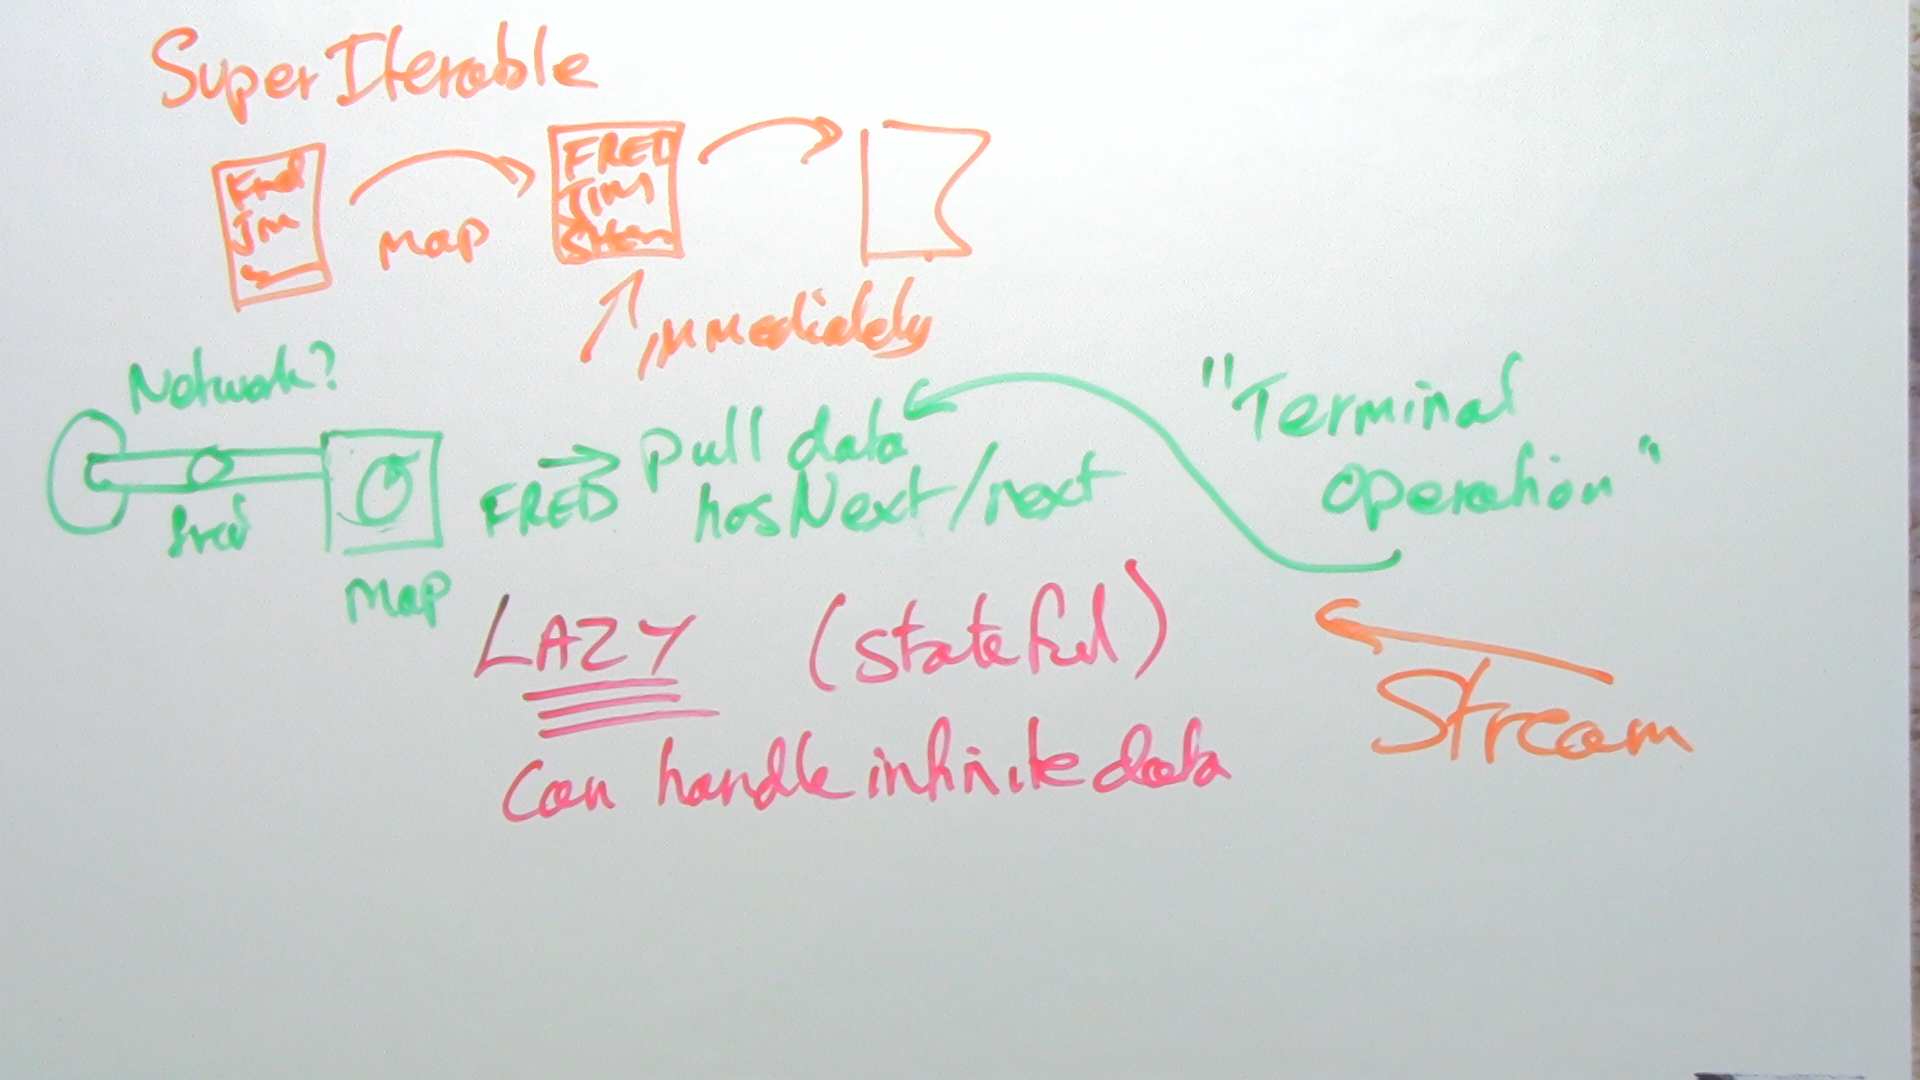 SuperIterable
Fred
Jim
S
map
FRED
JIM
SHEILA
immediately
Network?
fred
map
FRED
pull data
hasNext/next
"Terminal
Operation"
LAZY (stateful)
can handle infinite data
Stream